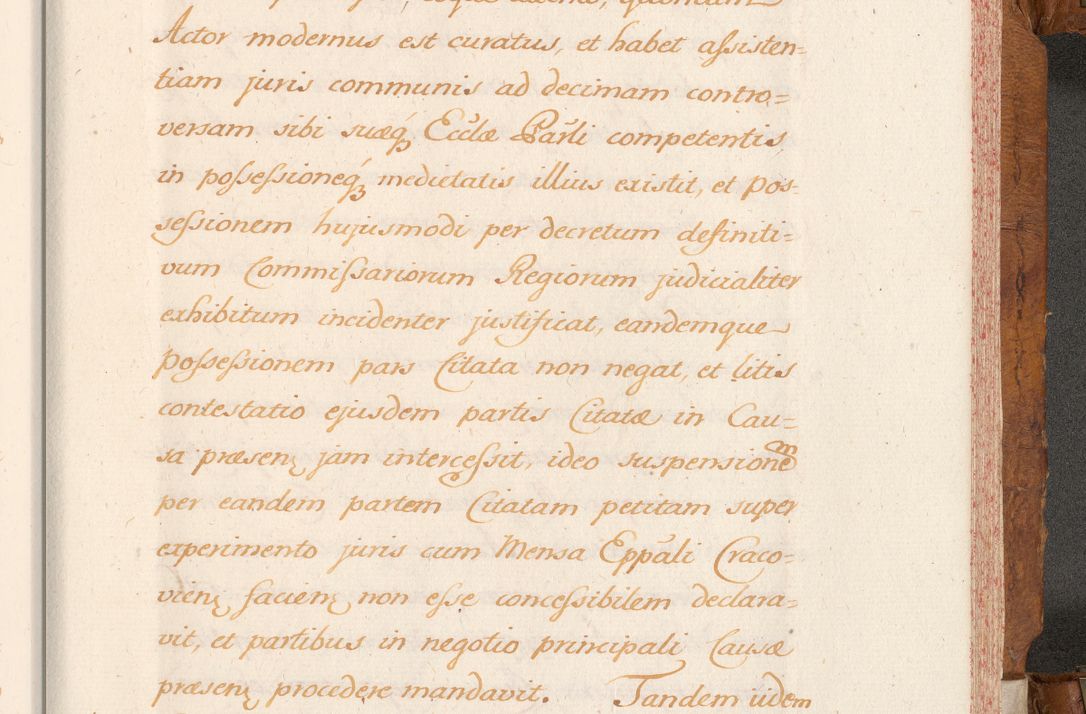 Actor modernus est curatus, et habet assisten=
tiam juris communis ad decimam contro=
versam sibi suæq́ꝫ Eccl̃æ Par̃li competentis
in possessioneq́ꝫ medietatis illius existit, et pos=
sessionem hujusmodi per decretum definiti=
vum Commissariorum Regiorum judicialiter
exhibitum incidenter justificat, eandemque
possessionem pars Citata non negat, et litis
contestatio ejusdem partis Citatæ in Cau=
sa præsenꝫ jam intercessit, ideo suspensionem
per eandem partem Citatam petitam super
experimento juris cum Mensa Epp̃ali Craco=
vienꝫ facienꝫ non esse concessibilem declara=
vit, et partibus in negotio principali Causæ
præsenꝫ procedere mandavit. Tandem iidem